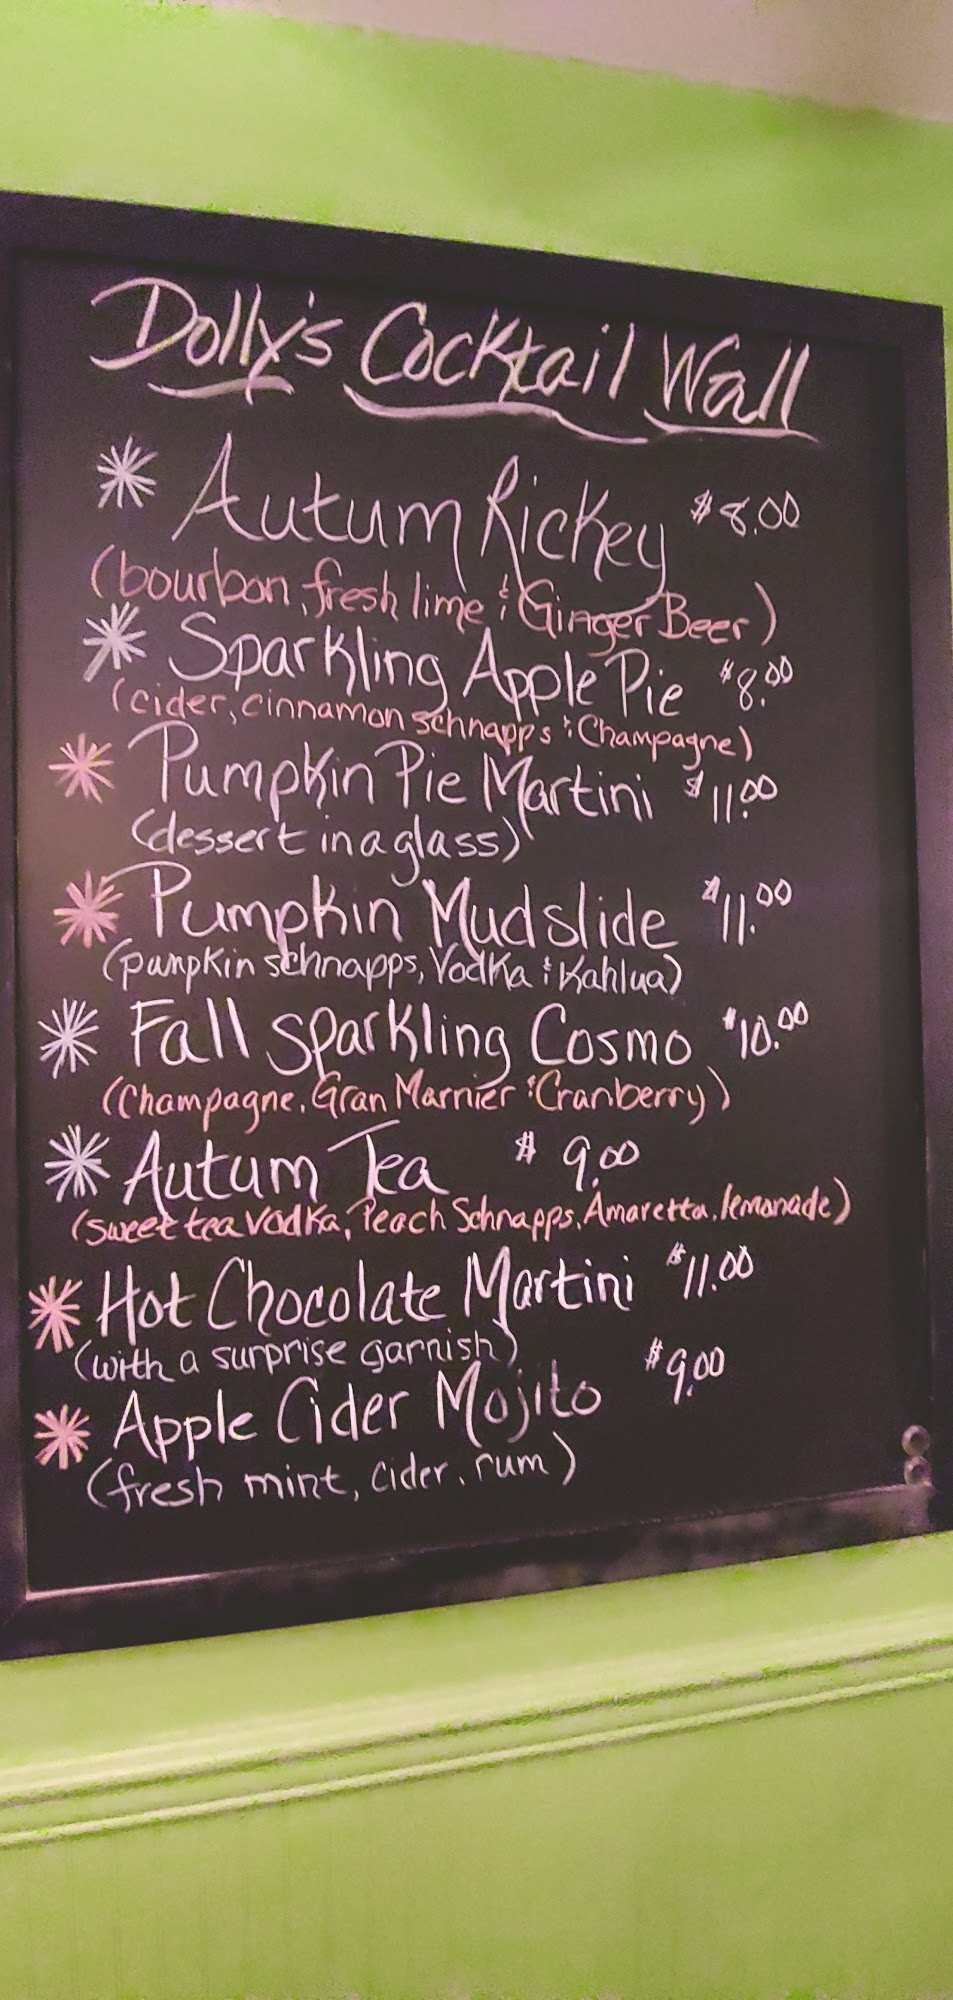 Dolly's Cocktail Wall
Autum Rickey $8.00
(bourbon, fresh lime & Ginger Beer)
Sparkling Apple Pie $8.00
(cider, cinnamon schnapps & Champagne)
Pumpkin Pie Martini $11.00
(dessert in a glass)
Pumpkin Mudslide $11.00
(pumpkin schnapps, Vodka & Kahlua)
Fall Sparkling Cosmo $10.00
(Champagne, Gran Marnier & Cranberry)
Autum Tea $9.00
(sweet tea vodka, Peach Schnapps, Amaretta, lemonade)
Hot Chocolate Martini $11.00
(with a surprise garnish)
Apple Cider Mojito $9.00
(fresh mint, cider, rum)